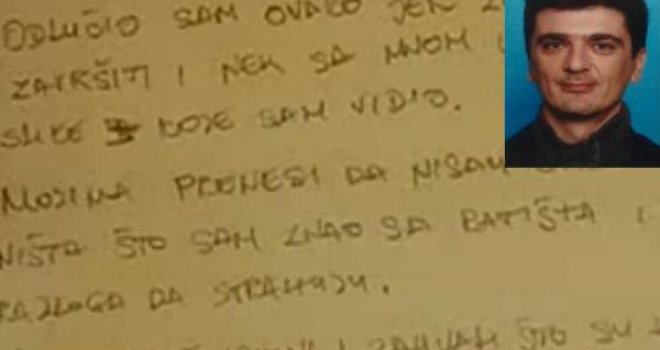 ODLUČIO SAM OVAKO JER
ZAVRŠITI I NEK SA MNOM
SLIKE KOJE SAM VIDIO.
MOJIMA PRENESI DA NISAM
NIŠTA ŠTO SAM ZNAO SA BATIŠTA I
RAZLOGA DA STRAHUJU.
I ZAHVALI ŠTO SU